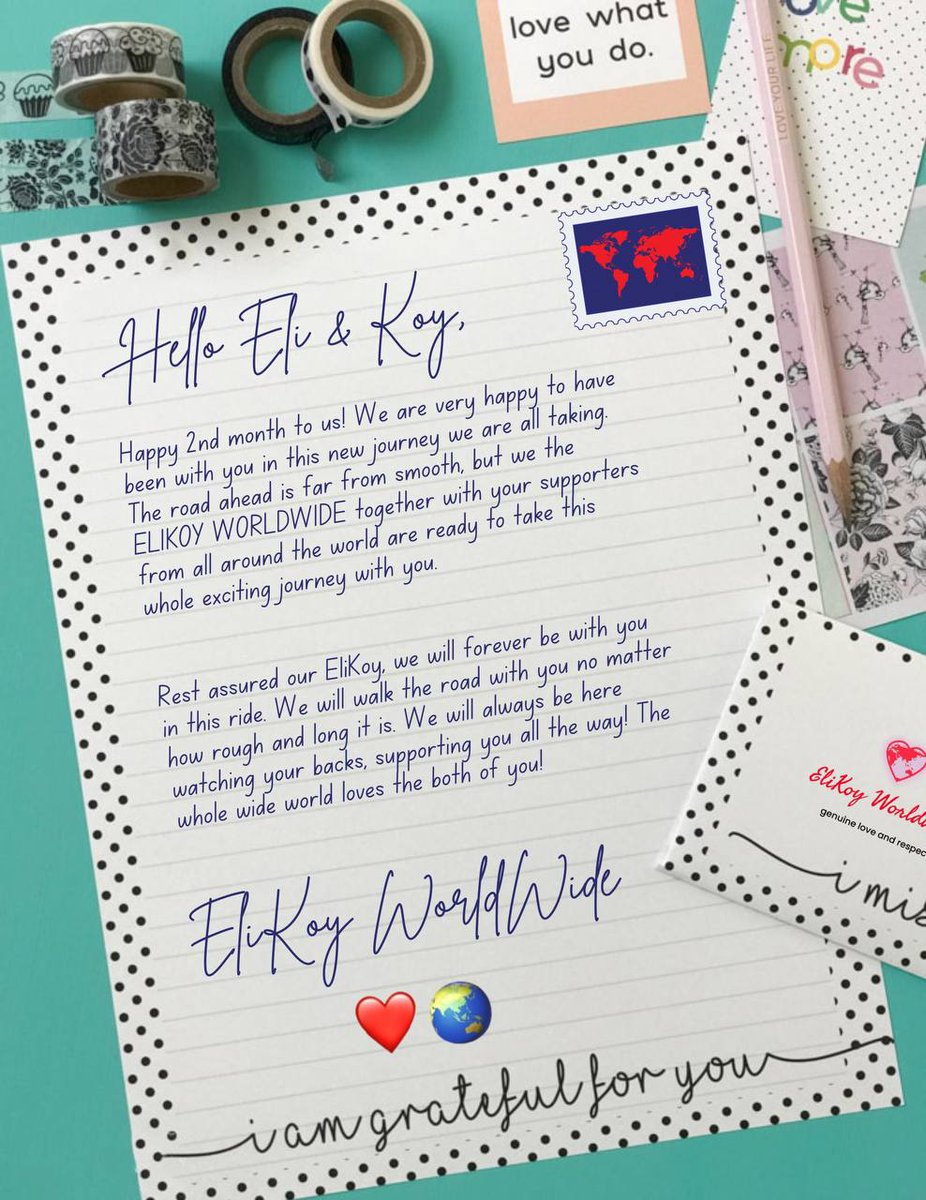 love what
you do.
love
more
LOVE YOUR LIFE
Hello Eli & Koy,
Happy 2nd month to us! We are very happy to have
been with you in this new journey we are all taking.
The road ahead is far from smooth, but we the
ELIKOY WORLDWIDE together with your supporters
from all around the world are ready to take this
whole exciting journey with you.
Rest assured our EliKoy, we will forever be with you
in this ride. We will walk the road with you no matter
how rough and long it is. We will always be here
watching your backs, supporting you all the way! The
whole wide world loves the both of you!
EliKoy WorldWide
i am grateful for you
EliKoy
genuine love and
i